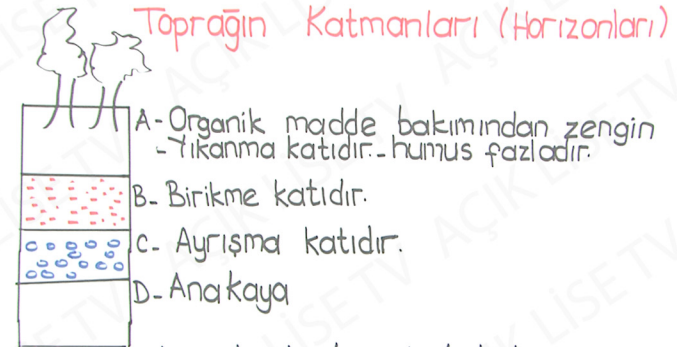 Toprağın Katmanları (Horızonları)
A- Organik madde bakımından zengin
- Yıkanma katıdır. - humus fazladır.
B- Birikme katıdır.
C- Ayrışma katıdır.
D- Anakaya
AÇIK LİSE TV